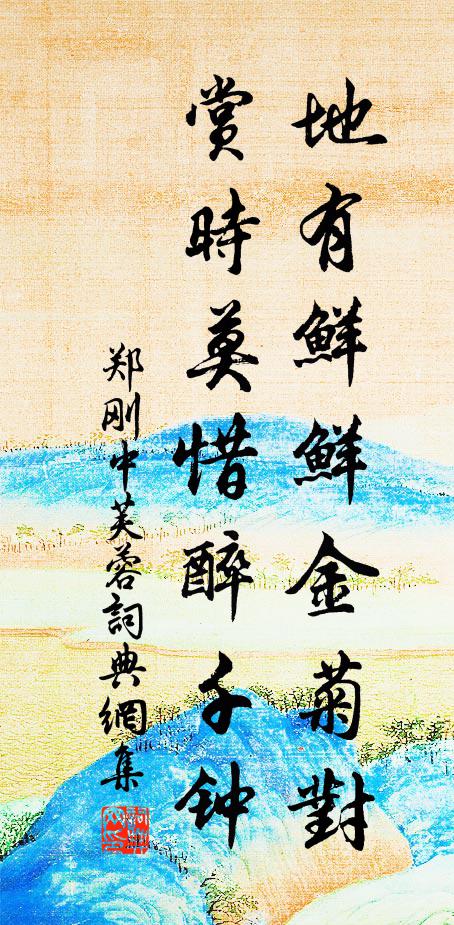 地有鮮鮮金菊對
賞時莫惜醉千钟
郑刚中芙蓉詞典網集